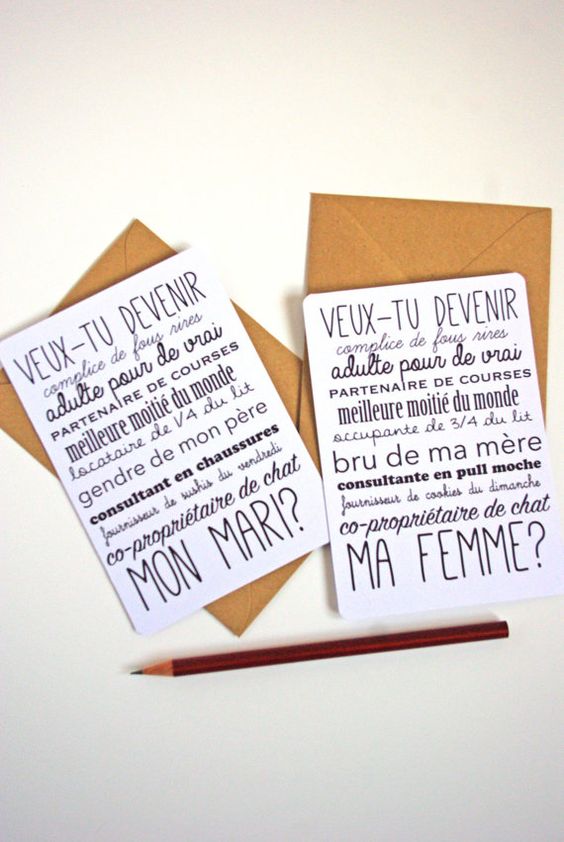 VEUX-TU DEVENIR
complice de fous rires
adulte pour de vrai
PARTENAIRE DE COURSES
meilleure moitié du monde
locataire de 1/4 du lit
gendre de mon père
consultant en chaussures
fournisseur de sushis du vendredi
co-propriétaire de chat
MON MARI?
VEUX-TU DEVENIR
complice de fous rires
adulte pour de vrai
PARTENAIRE DE COURSES
meilleure moitié du monde
occupante de 3/4 du lit
bru de ma mère
consultante en pull moche
fournisseur de cookies du dimanche
co-propriétaire de chat
MA FEMME?